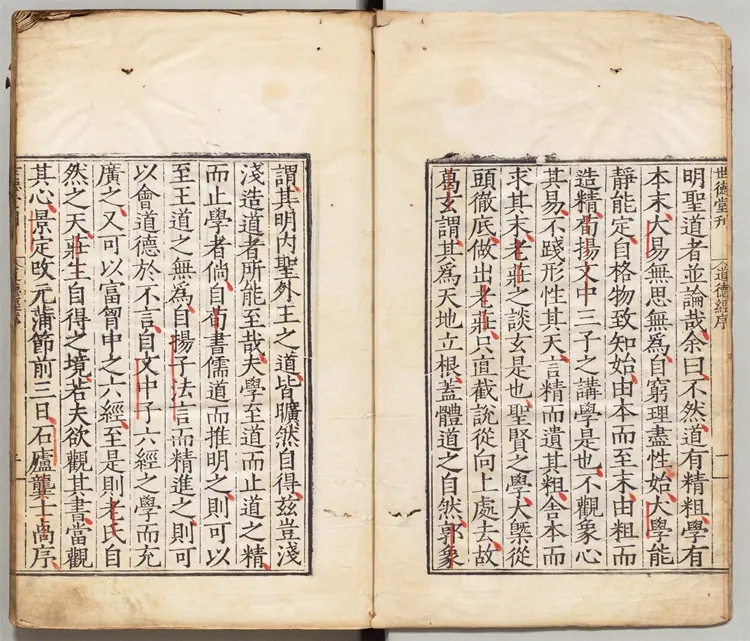 世德堂刊
道德經序
明聖道者並論哉余曰不然道有精粗學有
本末大易無思無爲自窮理盡性始大學能
靜能定自格物致知始由本而至末由粗而
造精荀揚文中三子之講學是也不觀象心
其易不踐形性其天言精而遺其粗舍本而
求其末老莊之談玄是也聖賢之學大槩從
頭徹底做出老莊只直截說從向上處去故
葛玄謂其爲天地立根蓋體道之自然郭象
謂其明内聖外王之道皆曠然自得茲豈淺
淺造道者所能至哉夫學至道而止道之精
而止學者倘自荀書儒道而推明之則可以
至王道之無爲自揚子法言而精進之則可
以會道德於不言自文中子六經之學而充
廣之又可以富胷中之六經至是則老氏自
然之天莊生自得之境若夫欲觀其書當觀
其心景定改元蒲節前三日石廬龔士卨序